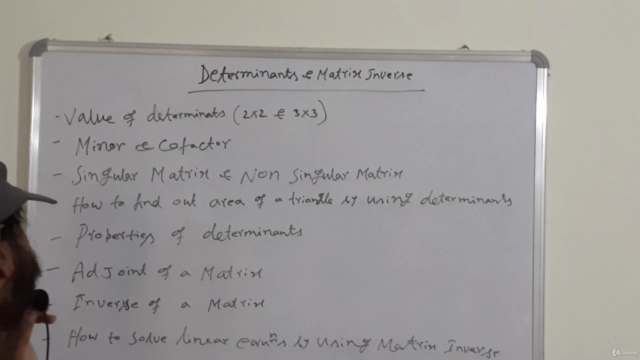 Determinants & Matrix Inverse
- Value of determinats (2x2 & 3x3)
- Minor & Cofactor
- Singular Matrix & Non Singular Matrix
How to find out area of a triangle by using determinants
- Properties of determinants
- AdJoint of a Matrix
- Inverse of a Matrix
- How to solve linear equⁿs by using Matrix Inverse